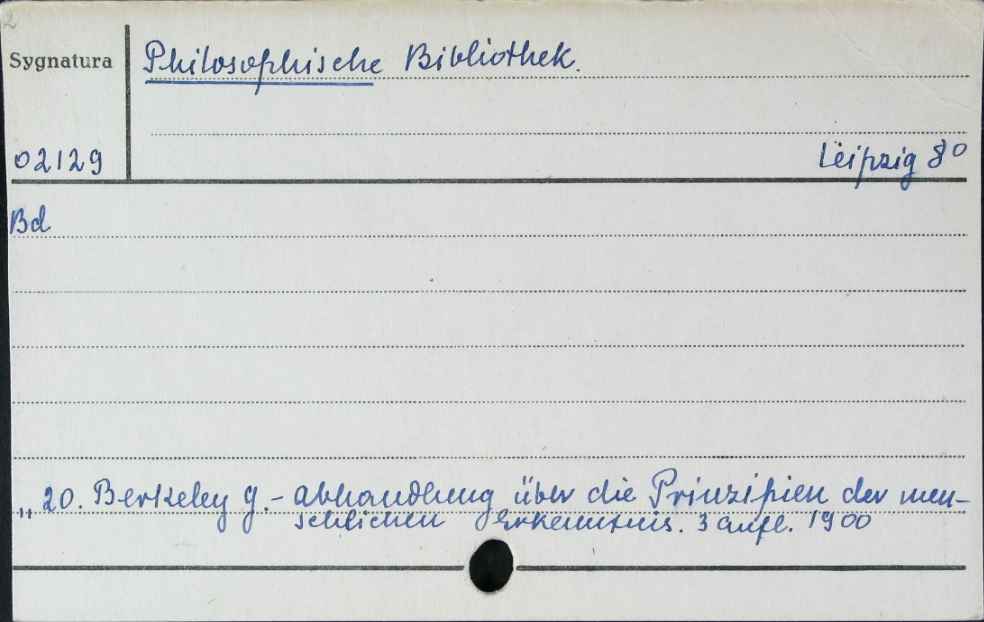 2
Sygnatura
Philosophische Bibliothek.
02129
Leipzig 8°
Bd
„ 20. Berkeley G. - Abhandlung über die Prinzipien der men-
schlichen Erkenntnis. 3 Aufl. 1900